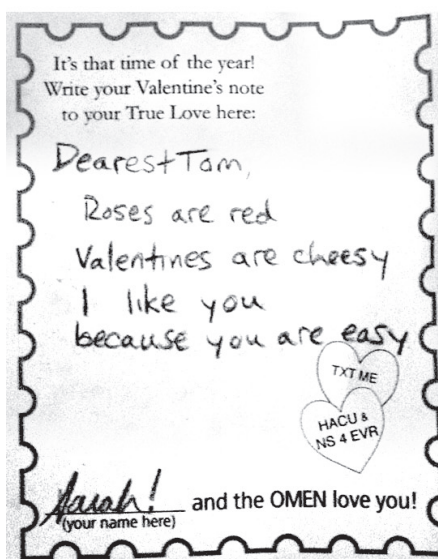 It's that time of the year!
Write your Valentine's note
to your True Love here:
Dearest Tom,
Roses are red
Valentines are cheesy
I like you
because you are easy
TXT ME
HACU &
NS 4 EVR
Sarah! and the OMEN love you!
(your name here)